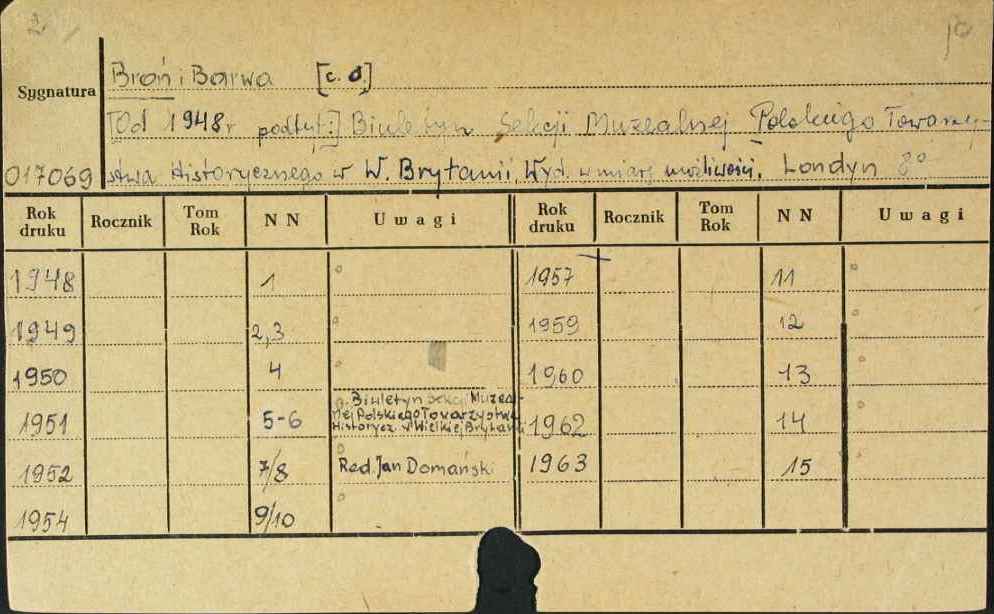 2
Broń i Barwa [c. d.]
Sygnatura
[Od 1948r podtyt:] Biuletyn Sekcji Muzealnej Polskiego Towarzy-
017069 stwa Historycznego w W. Brytanii. Wyd. w miarę możliwości. Londyn 8°
Rok druku Rocznik Tom Rok N N Uwagi Rok druku Rocznik Tom Rok N N Uwagi
1948 1 1957 11
1949 2,3 1959 12
1950 4 1960 13
Biuletyn Sekcji Muzeal-
nej Polskiego Towarzystwa
1951 5-6 Historycz. w Wielkiej Brytanii 1962 14
1952 7/8 Red. Jan Domański 1963 15
1954 9/10